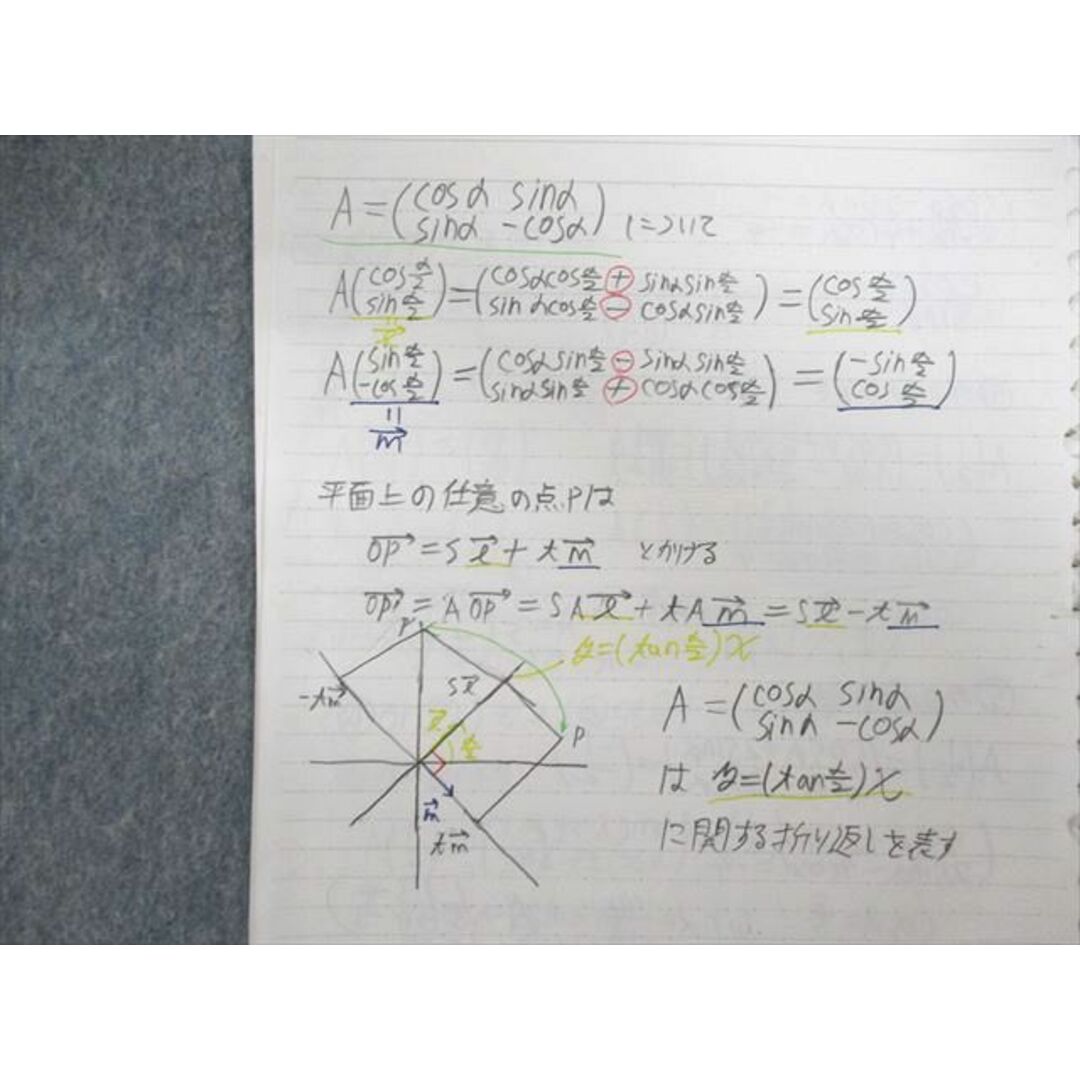 A = (cosα sinα
sinα -cosα) について
A(cos α/2
sin α/2) = (cosαcos α/2 + sinαsin α/2
sinαcos α/2 - cosαsin α/2) = (cos α/2
sin α/2)
=
l→
A(sin α/2
-cos α/2) = (cosαsin α/2 - sinαsin α/2
sinαsin α/2 + cosαcos α/2) = (-sin α/2
cos α/2)
=
m→
平面上の任意の点Pは
OP→ = s l→ + t m→ とかける
OP'→ = A OP→ = s A l→ + t A m→ = s l→ - t m→
P'
y = (tan α/2) x
s l→
-t m→
l→
α/2
P
m→
t m→
A = (cosα sinα
sinα -cosα)
は y = (tan α/2) x
に関する折り返しを表す